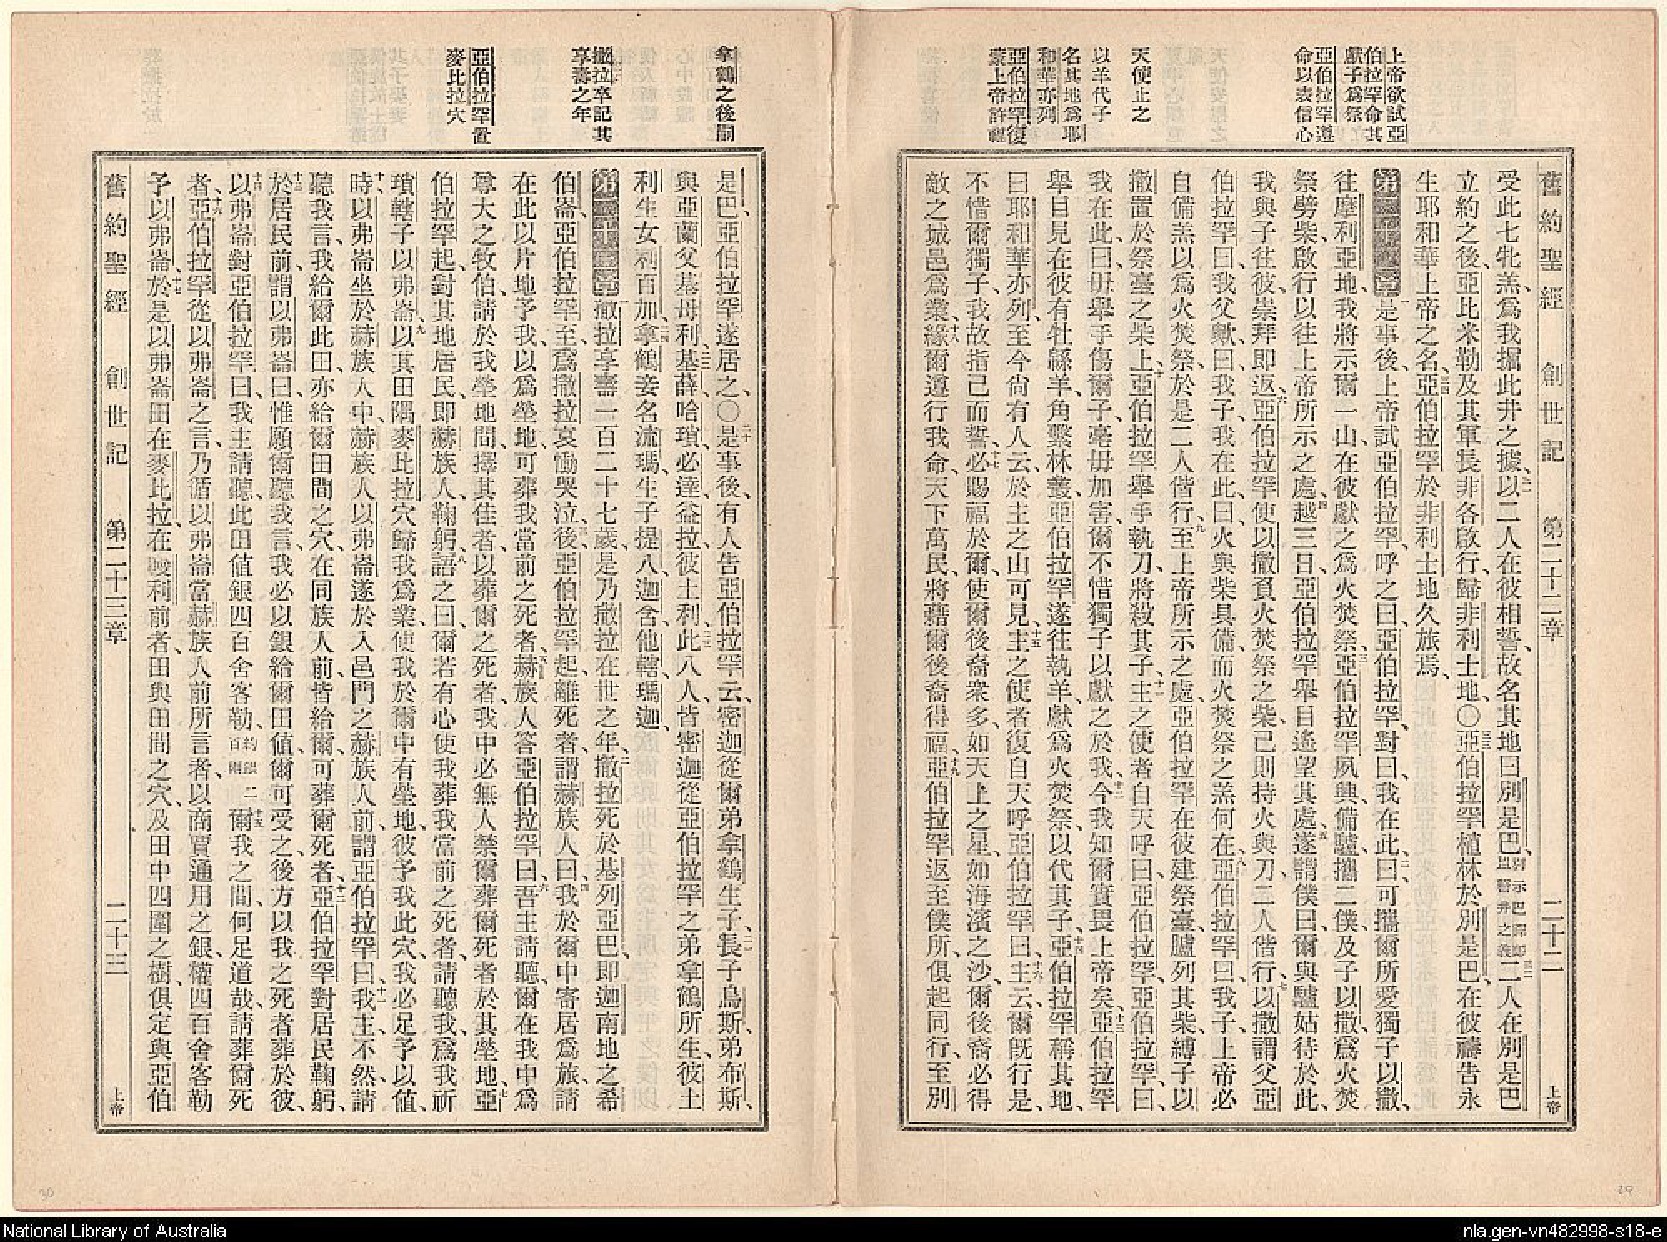 上帝欲試亞
伯拉罕命其
獻子爲祭
亞伯拉罕遵
命以表信心
天使止之
以羊代子
名其地爲耶
和華亦列
亞伯拉罕復
蒙上帝許福
舊約聖經 創世記 第二十二章 二十二 上帝
受此七牝羔、爲我掘此井之據、以二人在彼相誓、故名其地曰別是巴、別示巴譯卽盟誓井之義二人在別是巴
立約之後、亞比米勒及其軍長非各啟行、歸非利士地、〇亞伯拉罕植林於別是巴、在彼禱告永
生耶和華上帝之名、亞伯拉罕於非利士地久旅焉、
第二十二章 是事後、上帝試亞伯拉罕、呼之曰、亞伯拉罕、對曰、我在此、曰、可攜爾所愛獨子以撒、
往摩利亞地、我將示爾一山、在彼獻之爲火焚祭、亞伯拉罕夙興、備驢、攜二僕及子以撒、爲火焚
祭劈柴、啟行以往上帝所示之處、越三日、亞伯拉罕舉目遙望其處、遂謂僕曰、爾與驢姑待於此、
我與子往彼崇拜卽返、亞伯拉罕使以撒負火焚祭之柴、己則持火與刀、二人偕行、以撒謂父亞
伯拉罕曰、我父歟、曰、我子、我在此、曰、火與柴具備、而火焚祭之羔何在、亞伯拉罕曰、我子、上帝必
自備羔以爲火焚祭、於是二人偕行、至上帝所示之處、亞伯拉罕在彼建祭臺、臚列其柴、縛子以
撒置於祭臺之柴上、亞伯拉罕舉手執刀、將殺其子、主之使者自天呼曰、亞伯拉罕、亞伯拉罕、曰、
我在此、曰、毋舉手傷爾子、毫毋加害、爾不惜獨子以獻之於我、今我知爾實畏上帝矣、亞伯拉罕
舉目、見在彼有牡緜羊、角繫林叢、亞伯拉罕遂往執羊、獻爲火焚祭、以代其子、亞伯拉罕稱其地
曰耶和華亦列、至今尚有人云、於主之山可見、主之使者復自天呼亞伯拉罕曰、主云、爾旣行是、
不惜爾獨子、我故指己而誓、必賜福於爾、使爾後裔衆多、如天上之星、如海濱之沙、爾後裔必得
敵之城邑爲業、緣爾遵行我命、天下萬民將藉爾後裔得福、亞伯拉罕返至僕所、俱起同行、至別
拿鶴之後嗣
撒拉卒記其
享壽之年
亞伯拉罕置
麥比拉穴
是巴、亞伯拉罕遂居之、〇是事後、有人告亞伯拉罕云、密迦從爾弟拿鶴生子、長子烏斯、弟布斯、
與亞蘭父基母利、基薛、哈瑣、必達、益拉、彼土利、此八人、皆密迦從亞伯拉罕之弟拿鶴所生、彼土
利生女利百加、拿鶴妾名流瑪、生子提八、迦含、他轄、瑪迦、
第二十三章 撒拉享壽一百二十七歲、是乃撒拉在世之年、撒拉死於基列亞巴、卽迦南地之希
伯崙、亞伯拉罕至、爲撒拉哀慟哭泣、後亞伯拉罕起離死者、謂赫族人曰、我於爾中寄居爲旅、請
在此以片地予我、以爲塋地、可葬我當前之死者、赫族人答亞伯拉罕曰、吾主請聽、爾在我中爲
尊大之牧伯、請於我塋地間、擇其佳者、以葬爾之死者、我中必無人禁爾葬爾死者於其塋地、亞
伯拉罕起、對其地居民、卽赫族人、鞠躬、語之曰、爾若有心使我葬我當前之死者、請聽我、爲我祈
瑣轄子以弗崙、以其田隅麥比拉穴歸我爲業、使我於爾中有塋地、彼予我此穴、我必足予以值、
時以弗崙坐於赫族人中、赫族人以弗崙遂於入邑門之赫族人前、謂亞伯拉罕曰、我主不然、請
聽我言、我給爾此田、亦給爾田間之穴、在同族人前皆給爾、可葬爾死者、亞伯拉罕對居民鞠躬、
於居民前、謂以弗崙曰、惟願爾聽我言、我必以銀給爾田值、爾可受之、後方以我之死者葬於彼、
以弗崙對亞伯拉罕曰、我主請聽、此田值銀四百舍客勒、約銀二百兩爾我之間何足道哉、請葬爾死
者、亞伯拉罕從以弗崙之言、乃循以弗崙當赫族人前所言者、以商賈通用之銀、權四百舍客勒
予以弗崙、於是以弗崙田、在麥比拉、在幔利前者、田與田間之穴、及田中四圍之樹、俱定與亞伯
舊約聖經 創世記 第二十三章 二十三 上帝
National Library of Australia
nla.gen-vn482998-s18-e